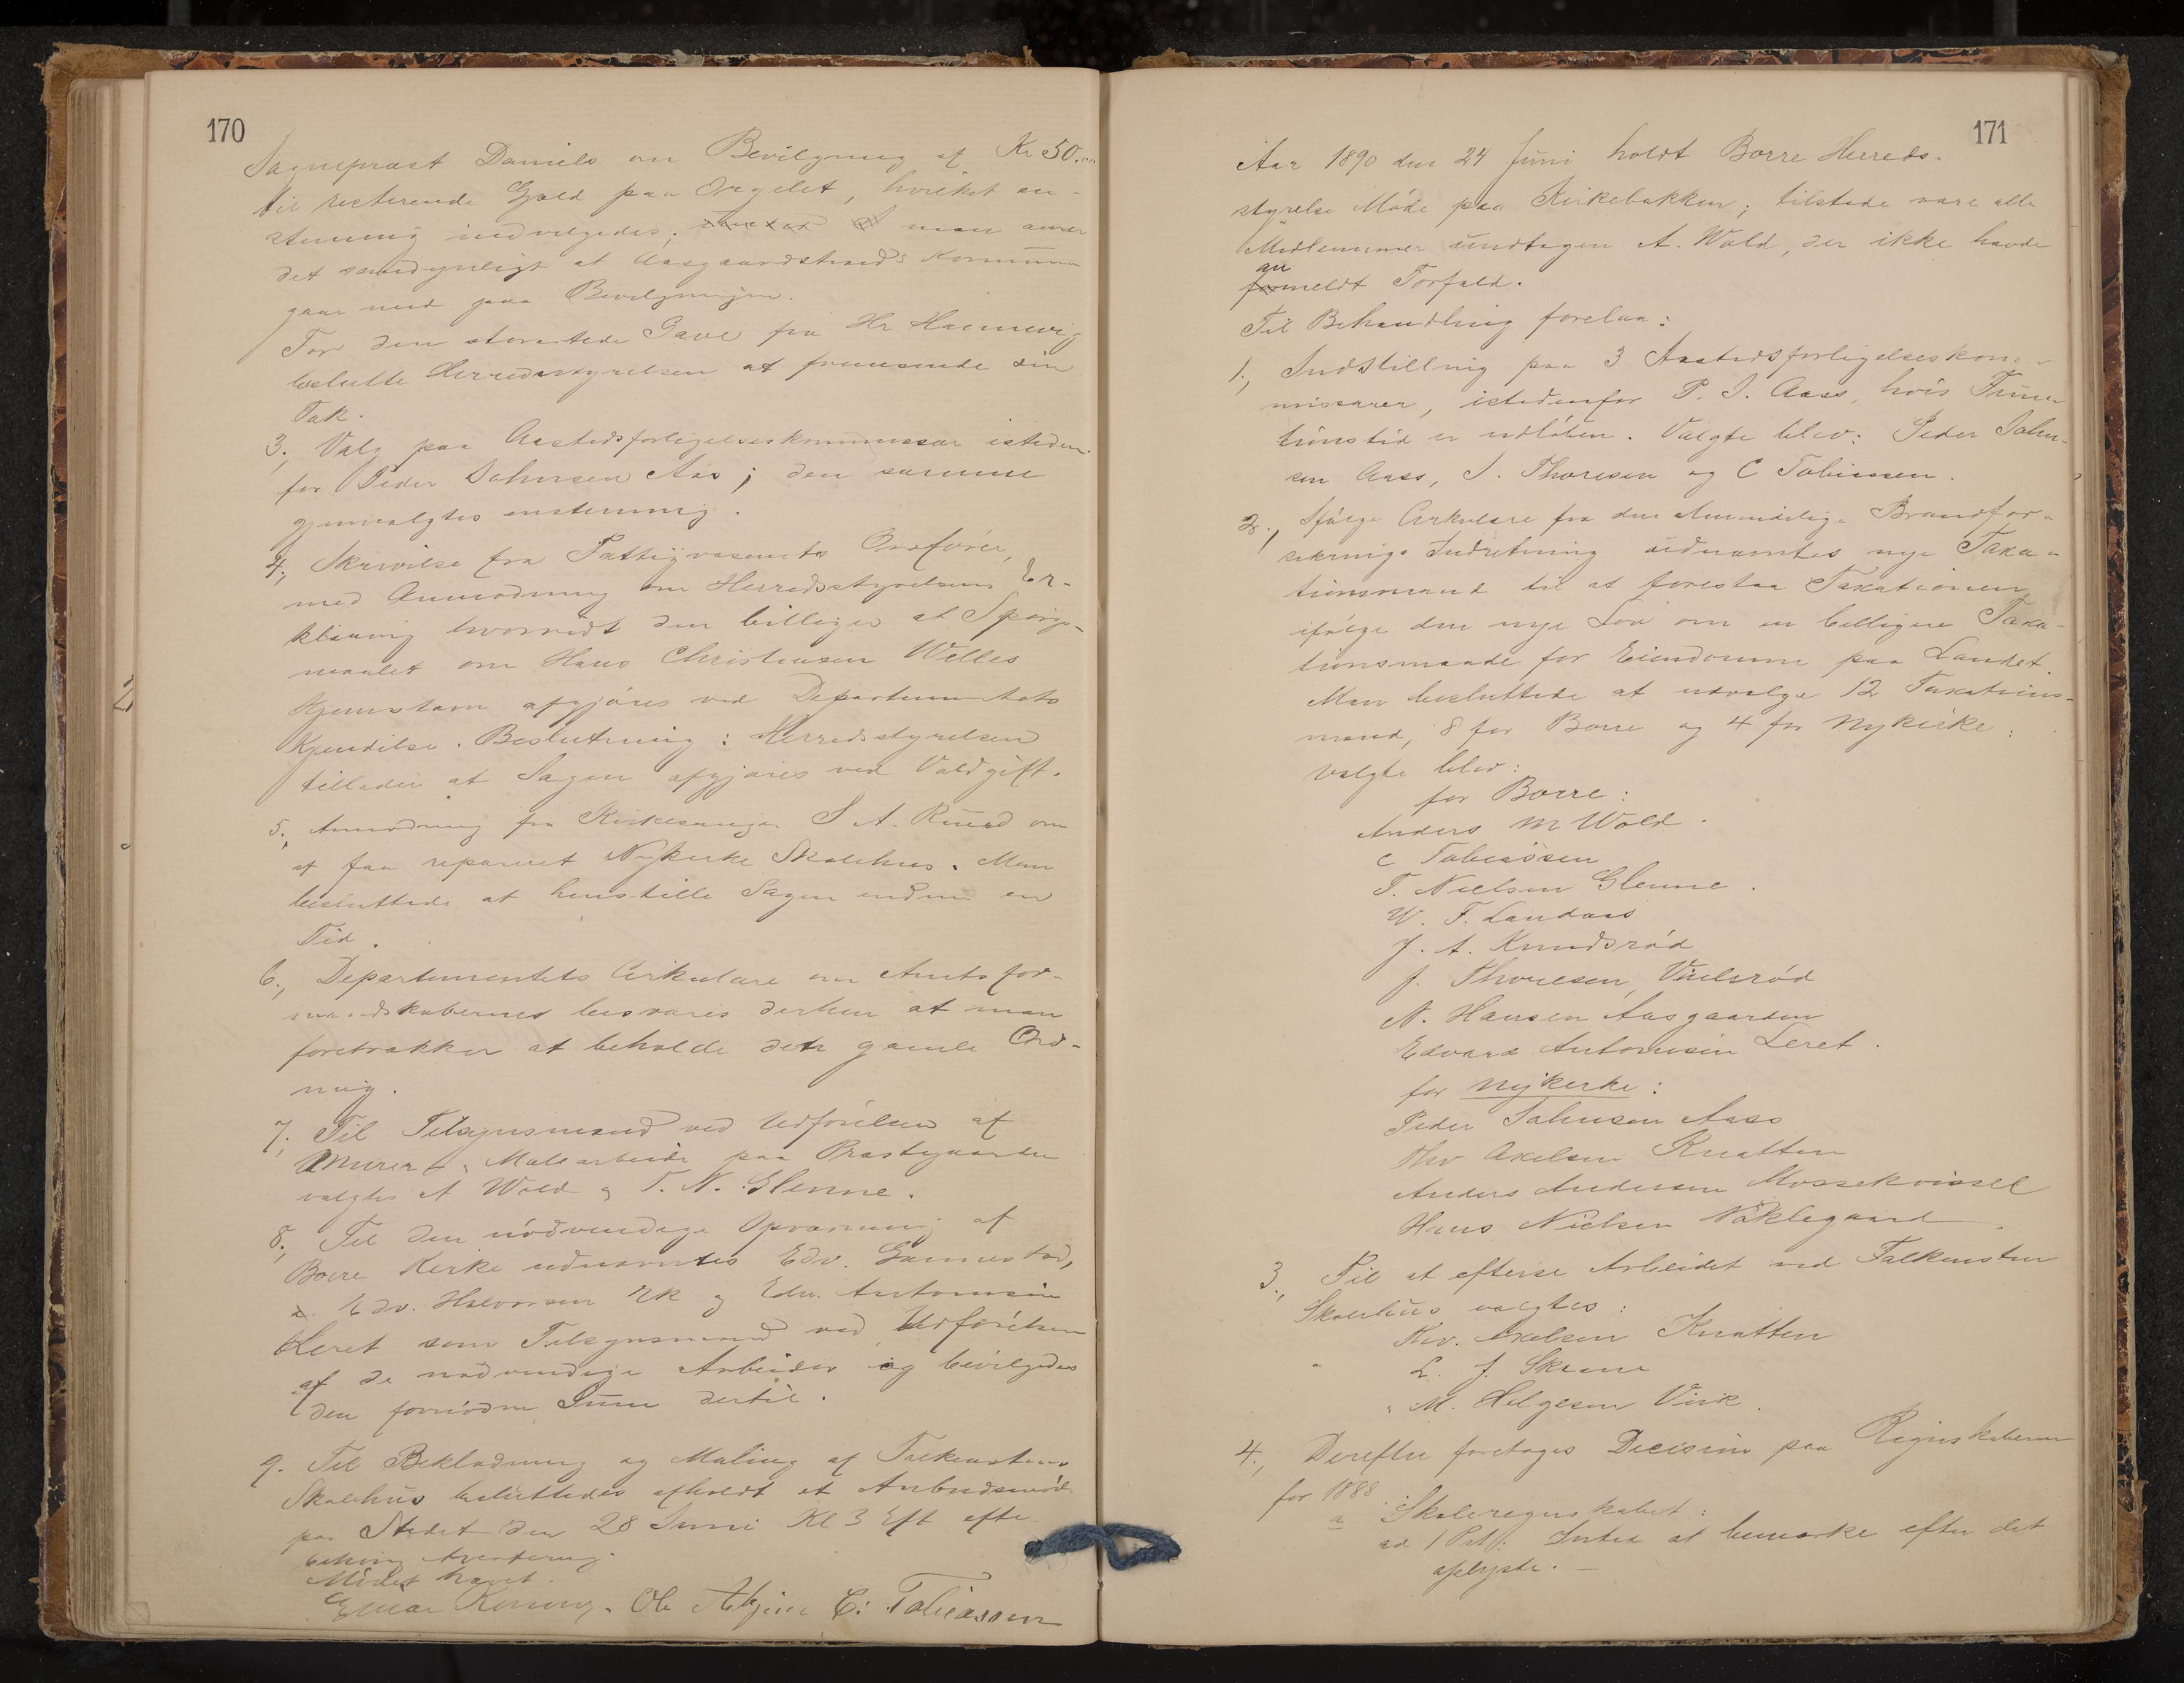 170
Sognepræst Daniels om Bevilgning af Kr 50.00
til resterende Gjæld paa Orgelet, hvilket en-
stemmig indvilgedes; man anser
det at Aasgaardstrands Kommune
gaar med paa Bevilgningen.
For den storartede Gave fra Hr Hannevig
beslutte Herredsstyrelsen at fremsende sin
Tak.
3., Valg paa Aastedsforligelseskommissær isteden-
for Peder Johnsen Aas; den samme
gjenvalgtes enstemmig.
4., Skrivelse fra Fattigvæsenets Ordfører,
med Anmodning om Herredsstyrelsens Er-
klæring hvorvidt den billiger at Spørgs-
maalet om Hans Christensen Welles
Hjemstavn afgjøres ved Departementets
Kjendelse. Beslutning: Herredsstyrelsen
tillader at Sagen afgjøres ved Voldgift.
5., Anmodning fra Kirkesanger S A. Ruud om
at faa repareret Nykirke Skolehus. Man
besluttede at henstille Sagen endnu en
Tid.
6., Departementets Cirkulære om Amtsfor-
mandskabernes besvares derhen at man
foretrækker at beholde den gamle Ord-
ning.
7., Til Tilsynsmænd ved Udførelsen af
Murer & Malerarbeide paa Præstegaarden
valgtes A Wold og T. N. Glenne.
8., Til den nødvendige Opvarming af
Borre Kirke udnævntes Edv. Gannestad,
Edv. Halvorsen Ek og Edv. Antonisen
Leret som Tilsynsmænd ved Udførelsen
af de nødvendige Arbeider og bevilgedes
den fornødne Sum dertil.
9. Til Beklædning og Maling af Falkensten
Skolehus besluttedes afholdt et Anbudsmøde
paa Stedet den 28 Juni Kl 3 Eft efter
Avertering.
Mødet hævet.
Ole C: Tobiassen
171
Aar 1890 den 24 Juni holdt Borre Herreds-
styrelse Møde paa Kirkebakken; tilstede vare alle
Medlemmer undtagen A. Wold, der ikke havde
an
formeldt Forfald.
Til Behandling forelaa:
1., Indstilling paa 3 Aastedsforligelseskom-
missærer, istedenfor P. J. Aass, hvis Funk-
tionstid er udløben. Valgte blev: Peder John-
sen Aass, J. Thoresen og C Tobiassen.
2., Ifølge Cirkulære fra den Almindelige Brandfor-
sikrings Indretning udnævntes nye Taxa-
tionsmænd til at forestaa Taxationen
ifølge den nye Lov om en billigere Taxa-
tionsmaade for Eiendomme paa Landet.
Man besluttede at udvælge 12 Taxations-
mænd, 8 for Borre og 4 for Nykirke:
valgte blev:
for Borre:
Anders M Wold.
C Tobiassen
T. Nielsen Glenne.
W. F. Landaas
J. A. Knudsrød
J. Thoresen, Vielsrød
N. Hansen Aasgaarden
Edvard Antonisen Leret.
for Nykirke:
Peder Johnsen Aass
Thv Axelsen Knatten
Anders Andersen Mossekvissel
Hans Nielsen Nøklegaard.
3., Til at efterse Arbeidet ved Falkensten
Skolehus valgtes:
Thv. Axelsen Knatten
L. J. Skrane
" M. Helgesen Viik.
4., Derefter foretoges Decision paa Regnskaberne
for 1888
a Skoleregnskabet:
ad 1 Pst: Intet at bemærke efter det
oplyste. —